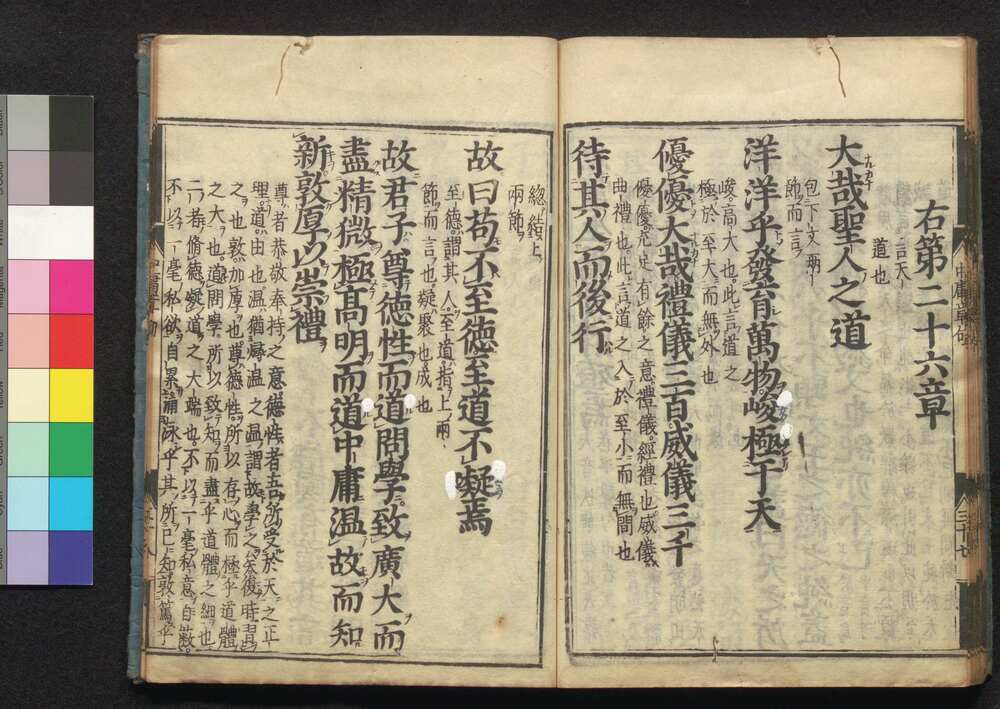 右第二十六章
言天
道也
大哉聖人之道
包下文兩
節而言
洋洋乎發育萬物峻極于天
峻高大也此言道之
極於至大而無外也
優優大哉禮儀三百威儀三千
優優充足有餘之意禮儀經禮也威儀
曲禮也此言道之入於至小而無間也
待其人而後行
總結上
兩節
故曰苟不至德至道不凝焉
至德謂其人至道指上兩
節而言也凝聚也成也
故君子尊德性而道問學致廣大而
盡精微極高明而道中庸溫故而知
新敦厚以崇禮
尊者恭敬奉持之意德性者吾所受於天之正
理道由也溫猶燖溫之溫謂故學之矣復時習
之也敦加厚也尊德性所以存心而極乎道體
之大也道問學所以致知而盡乎道體之細也
二者脩德凝道之大端也不以一毫私意自蔽
不以一毫私欲自累涵泳乎其所已知敦篤乎